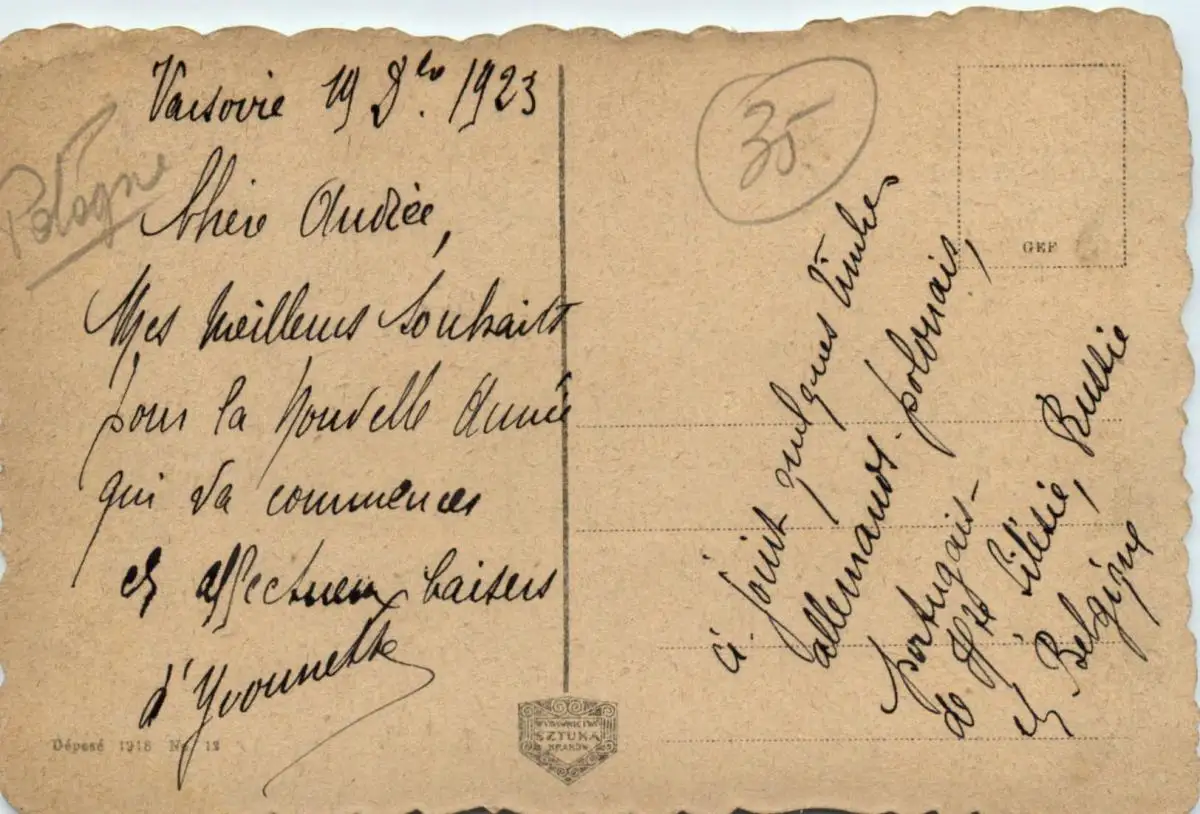 Varsovie 19 Dbre. 1923
Pologne
Chère Andrée,
Mes meilleurs souhaits
pour la Nouvelle Année
qui va commencer
et affectueux baisers
d'Yvonnette
Déposé 1918 No. 12
WYDAWNICTWO
SZTUKA
KRAKÓW
35
GEF
ci-joint quelques timbres
allemands - polonais,
portugais -
de Hte Silésie, Russie
et Belgique